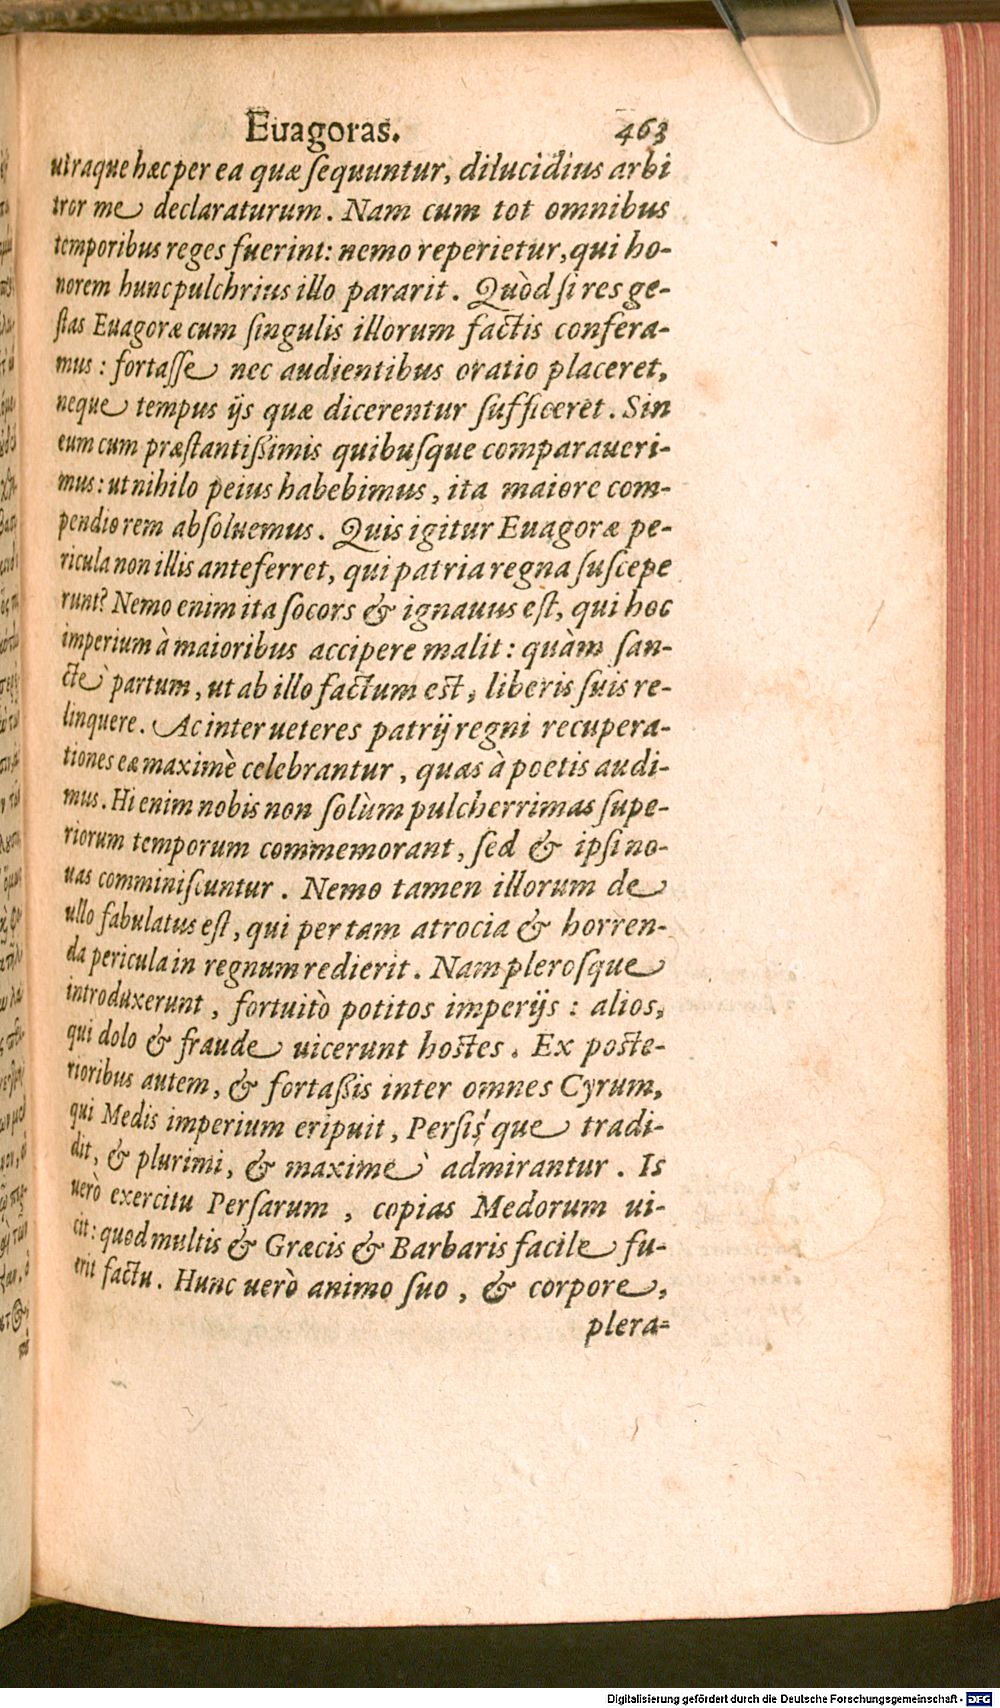 Euagoras. 463
utraque hæc per ea quæ sequuntur, dilucidius arbi
tror me declaraturum. Nam cum tot omnibus
temporibus reges fuerint: nemo reperietur, qui ho-
norem hunc pulchrius illo pararit. Quòd si res ge-
stas Euagoræ cum singulis illorum factis confera-
mus: fortasse nec audientibus oratio placeret,
neque tempus ijs quæ dicerentur sufficeret. Sin
eum cum præstantißimis quibusque comparaueri-
mus: ut nihilo peius habebimus, ita maiore com-
pendio rem absoluemus. Quis igitur Euagoræ pe-
ricula non illis anteferret, qui patria regna suscepe
runt? Nemo enim ita socors & ignauus est, qui hoc
imperium à maioribus accipere malit: quàm san-
ctè partum, ut ab illo factum est, liberis suis re-
linquere. Ac inter ueteres patrij regni recupera-
tiones eæ maximè celebrantur, quas à poetis audi-
mus. Hi enim nobis non solùm pulcherrimas supe-
riorum temporum commemorant, sed & ipsi no-
uas comminiscuntur. Nemo tamen illorum de
ullo fabulatus est, qui per tam atrocia & horren-
da pericula in regnum redierit. Nam plerosque
introduxerunt, fortuitò potitos imperijs: alios,
qui dolo & fraude uicerunt hostes. Ex poste-
rioribus autem, & fortaßis inter omnes Cyrum,
qui Medis imperium eripuit, Persis´que tradi-
dit, & plurimi, & maximè admirantur. Is
uero exercitu Persarum, copias Medorum ui-
cit: quod multis & Græcis & Barbaris facile fu-
erit factu. Hunc uerò animo suo, & corpore,
plera-
Digitalisierung gefördert durch die Deutsche Forschungsgemeinschaft - DFG